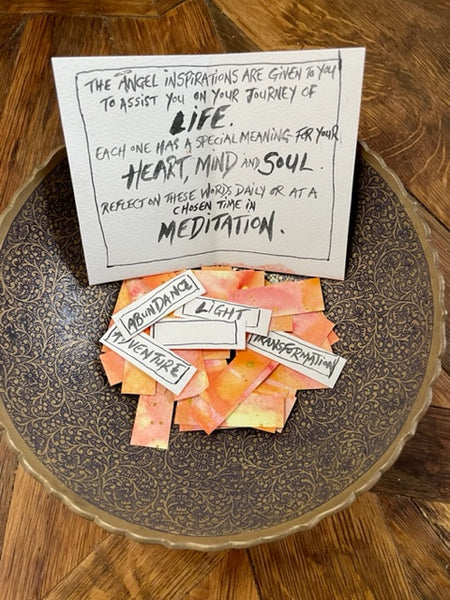 THE ANGEL INSPIRATIONS ARE GIVEN TO YOU
TO ASSIST YOU ON YOUR JOURNEY OF
LIFE.
EACH ONE HAS A SPECIAL MEANING FOR YOUR
HEART, MIND AND SOUL.
REFLECT ON THESE WORDS DAILY OR AT A
CHOSEN TIME IN
MEDITATION.
ABUNDANCE
LIGHT
ADVENTURE
TRANSFORMATION